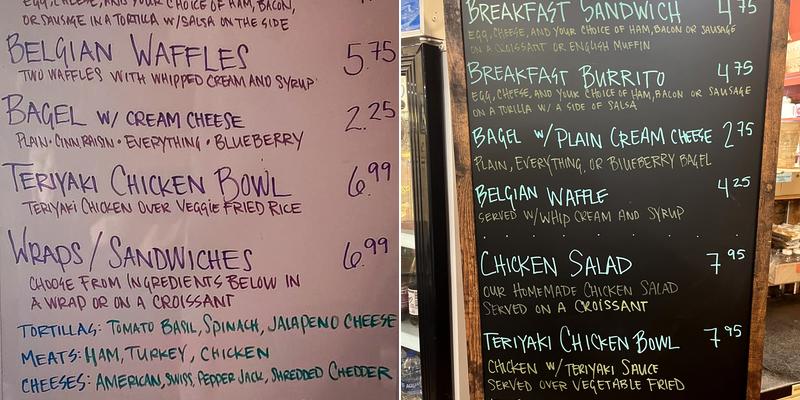 EGG, CHEESE, AND YOUR CHOICE OF HAM, BACON,
OR SAUSAGE IN A TORTILLA W/SALSA ON THE SIDE
BELGIAN WAFFLES 5.75
TWO WAFFLES WITH WHIPPED CREAM AND SYRUP
BAGEL W/ CREAM CHEESE 2.25
PLAIN • CINN RAISIN • EVERYTHING • BLUEBERRY
TERIYAKI CHICKEN BOWL 6.99
TERIYAKI CHICKEN OVER VEGGIE FRIED RICE
WRAPS / SANDWICHES 6.99
CHOOSE FROM INGREDIENTS BELOW IN
A WRAP OR ON A CROISSANT
TORTILLAS: TOMATO BASIL, SPINACH, JALAPENO CHEESE
MEATS: HAM, TURKEY, CHICKEN
CHEESES: AMERICAN, SWISS, PEPPER JACK, SHREDDED CHEDDER
BREAKFAST SANDWICH 4.75
EGG, CHEESE, AND YOUR CHOICE OF HAM, BACON OR SAUSAGE
ON A CROISSANT OR ENGLISH MUFFIN
BREAKFAST BURRITO 4.75
EGG, CHEESE, AND YOUR CHOICE OF HAM, BACON OR SAUSAGE
ON A TORILLA W/ A SIDE OF SALSA
BAGEL W/PLAIN CREAM CHEESE 2.75
PLAIN, EVERYTHING, OR BLUEBERRY BAGEL
BELGIAN WAFFLE 4.25
SERVED W/WHIP CREAM AND SYRUP
CHICKEN SALAD 7.95
OUR HOMEMADE CHICKEN SALAD
SERVED ON A CROISSANT
TERIYAKI CHICKEN BOWL 7.95
CHICKEN W/TERIYAKI SAUCE
SERVED OVER VEGETABLE FRIED